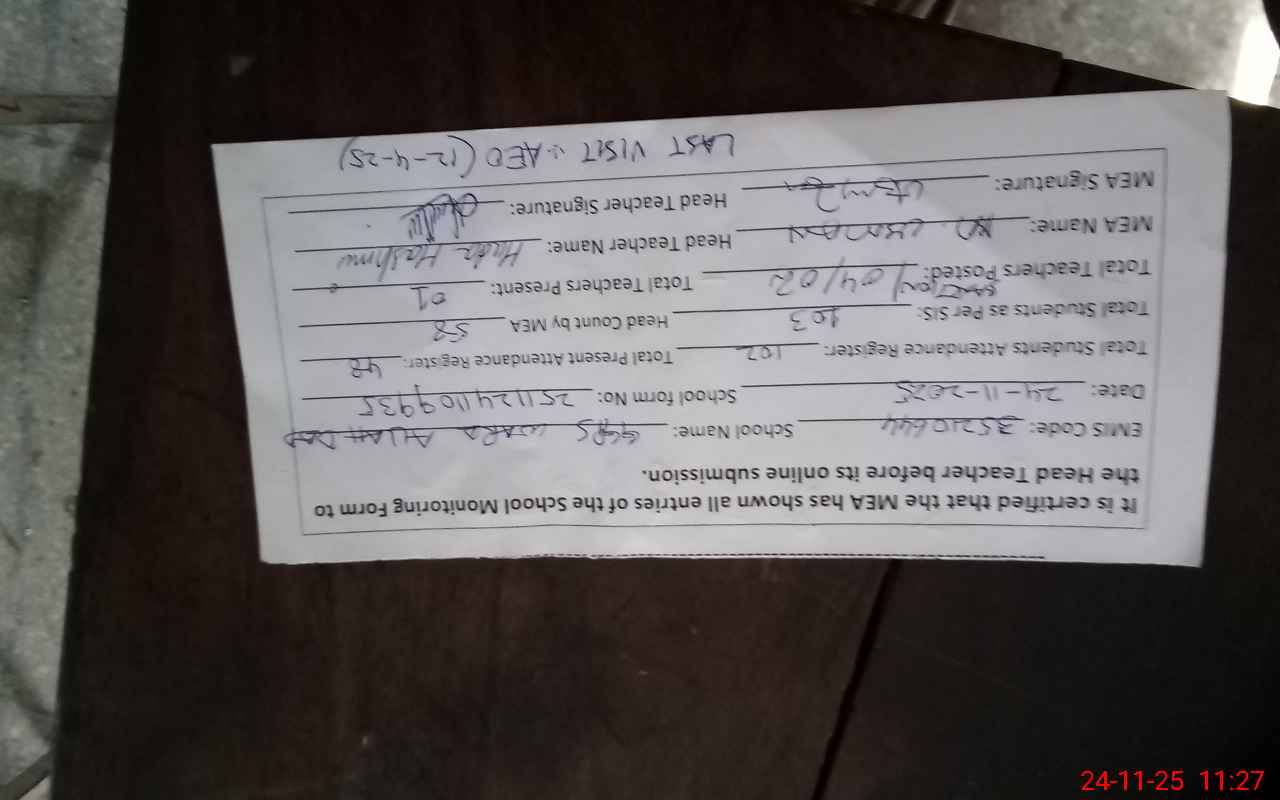 It is certified that the MEA has shown all entries of the School Monitoring Form to
the Head Teacher before its online submission.
EMIS Code: 35210644 School Name: GGPS WARA ALLAH DAD
Date: 24-11-2025 School form No: 2511241109935
Total Students Attendance Register: 102 Total Present Attendant Register: 48
Total Students as Per SIS: 103 Head Count by MEA 58
Total Teachers Posted: SANCTION/ 04/02 Total Teachers Present: 01
MEA Name: USMAN Head Teacher Name: Huda Hashmi
MEA Signature: Head Teacher Signature:
LAST VISIT :- AEO (12-4-25)
24-11-25 11:27